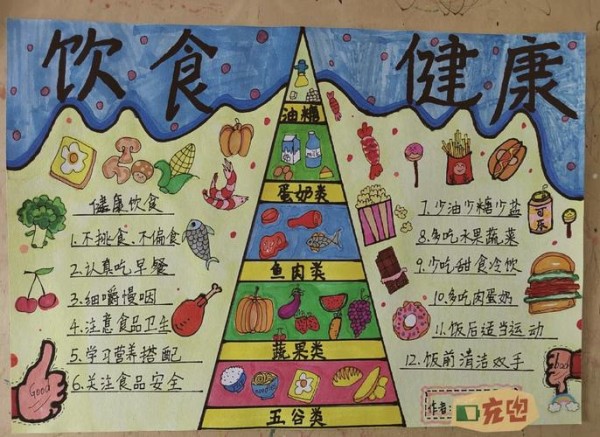 饮食健康
油糖
蛋奶类
鱼肉类
蔬果类
五谷类
健康饮食
1.不挑食、不偏食
2.认真吃早餐
3.细嚼慢咽
4.注意食品卫生
5.学习营养搭配
6.关注食品安全
7.少油少糖少盐
8.多吃水果蔬菜
9.少吃甜食冷饮
10.多吃肉蛋奶
11.饭后适当运动
12.饭前清洁双手
Good
bad
作者: